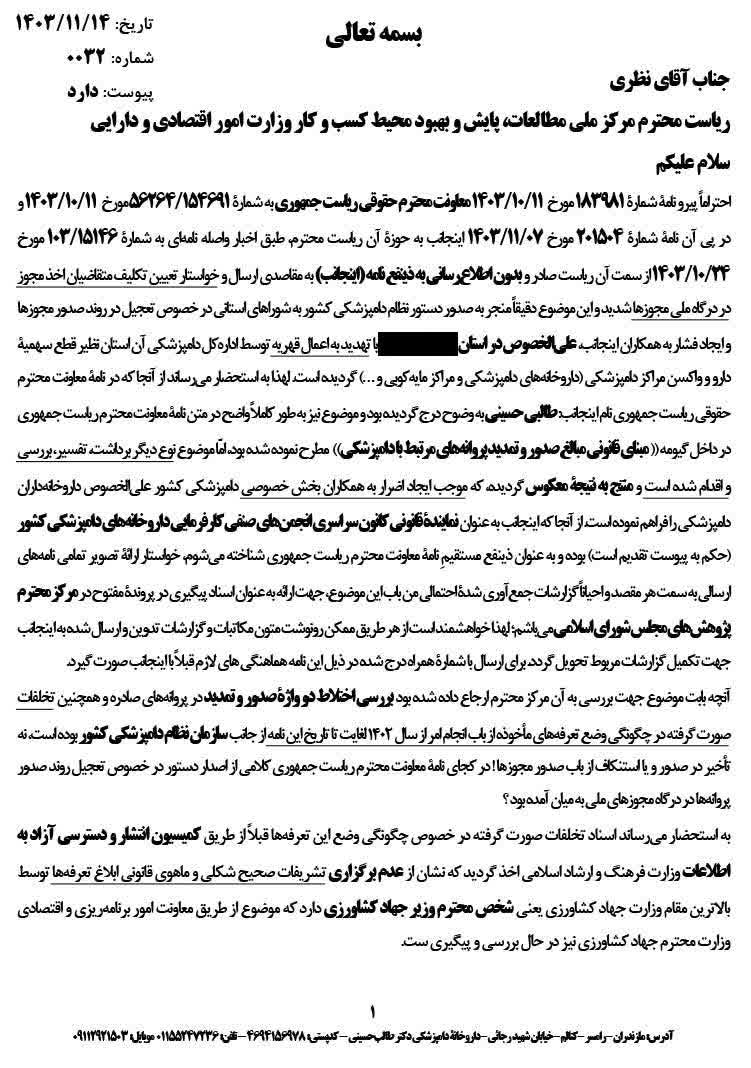 بسمه تعالی
تاریخ: ۱۴۰۳/۱۱/۱۴
شماره: ۰۰۳۲
پیوست: دارد
جناب آقای نظری
ریاست محترم مرکز ملی مطالعات، پایش و بهبود محیط کسب و کار وزارت امور اقتصادی و دارایی
سلام علیکم
احتراماً پیرو نامهٔ شمارهٔ ۱۸۳۹۸۱ مورخ ۱۴۰۳/۱۰/۱۱ معاونت محترم حقوقی ریاست جمهوری به شمارهٔ ۵۶۲۶۴/۱۵۴۶۹۱ مورخ ۱۴۰۳/۱۰/۱۱ و
در پی آن نامهٔ شمارهٔ ۲۰۱۵۰۴ مورخ ۱۴۰۳/۱۱/۰۷ اینجانب به حوزهٔ آن ریاست محترم، طبق اخبار واصله نامه‌ای به شمارهٔ ۱۰۳/۱۵۱۴۶ مورخ
۱۴۰۳/۱۰/۲۴ از سمت آن ریاست صادر و بدون اطلاع رسانی به ذینفع نامه (اینجانب) به مقاصدی ارسال و خواستار تعیین تکلیف متقاضیان اخذ مجوز
در درگاه ملی مجوزها شدید و این موضوع دقیقاً منجر به صدور دستور نظام دامپزشکی کشور به شوراهای استانی در خصوص تعجیل در روند صدور مجوزها
و ایجاد فشار به همکاران اینجانب، علی‌الخصوص در استان با تهدید به اعمال قهریه توسط اداره کل دامپزشکی آن استان نظیر قطع سهمیهٔ
دارو و واکسن مراکز دامپزشکی (داروخانه‌های دامپزشکی و مراکز مایه‌کوبی و...) گردیده است. لهذا به استحضار می‌رساند از آنجا که در نامهٔ معاونت محترم
حقوقی ریاست جمهوری نام اینجانب: طالبی حسینی به وضوح درج گردیده بود و موضوع نیز به طور کاملاً واضح در متن نامهٔ معاونت محترم ریاست جمهوری
در داخل گیومه ((مبنای قانونی مبالغ صدور و تمدید پروانه‌های مرتبط با دامپزشکی)) مطرح نموده شده بود، امّا موضوع نوع دیگر برداشت، تفسیر، بررسی
و اقدام شده است و منتج به نتیجهٔ معکوس گردیده، که موجب ایجاد اضرار به همکاران بخش خصوصی دامپزشکی کشور علی‌الخصوص داروخانه‌داران
دامپزشکی را فراهم نموده است. از آنجا که اینجانب به عنوان نمایندهٔ قانونی کانون سراسری انجمن‌های صنفی کارفرمایی داروخانه‌های دامپزشکی کشور
(حکم به پیوست تقدیم است) بوده و به عنوان ذینفع مستقیم نامهٔ معاونت محترم ریاست جمهوری شناخته می‌شوم، خواستار ارائهٔ تصویر تمامی نامه‌های
ارسالی به سمت هر مقصد و احیاناً گزارشات جمع‌آوری شدهٔ احتمالی من باب این موضوع، جهت ارائه به عنوان اسناد پیگیری در پروندهٔ مفتوح در مرکز محترم
پژوهش‌های مجلس شورای اسلامی می‌باشم؛ لهذا خواهشمند است از هر طریق ممکن رونوشت متون مکاتبات و گزارشات تدوین و ارسال شده به اینجانب
جهت تکمیل گزارشات مربوط تحویل گردد. برای ارسال با شمارهٔ همراه درج شده در ذیل این نامه هماهنگی های لازم قبلاً با اینجانب صورت گیرد.
آنچه بابت موضوع جهت بررسی به آن مرکز محترم ارجاع داده شده بود بررسی اختلاط دو واژهٔ صدور و تمدید در پروانه‌های صادره و همچنین تخلفات
صورت گرفته در چگونگی وضع تعرفه‌های مأخوذه از باب انجام امر از سال ۱۴۰۲ لغایت تا تاریخ این نامه از جانب سازمان نظام دامپزشکی کشور بوده است. نه
تأخیر در صدور و یا استنکاف از باب صدور مجوزها! در کجای نامهٔ معاونت محترم ریاست جمهوری کلامی از اصدار دستور در خصوص تعجیل روند صدور
پروانه‌ها در درگاه مجوزهای ملی به میان آمده بود؟
به استحضار می‌رساند اسناد تخلفات صورت گرفته در خصوص چگونگی وضع این تعرفه‌ها قبلاً از طریق کمیسیون انتشار و دسترسی آزاد به
اطلاعات وزارت فرهنگ و ارشاد اسلامی اخذ گردید که نشان از عدم برگزاری تشریفات صحیح شکلی و ماهوی قانونی ابلاغ تعرفه‌ها توسط
بالاترین مقام وزارت جهاد کشاورزی یعنی شخص محترم وزیر جهاد کشاورزی دارد که موضوع از طریق معاونت امور برنامه‌ریزی و اقتصادی
وزارت محترم جهاد کشاورزی نیز در حال بررسی و پیگیری ست.
۱
آدرس: مازندران – رامسر – کتالم – خیابان شهید رجائی – داروخانهٔ دامپزشکی دکتر طالب حسینی – کدپستی: ۴۶۹۴۱۵۶۹۷۸ – تلفن: ۰۱۱۵۵۲۴۷۲۳۶ موبایل: ۰۹۱۱۲۹۲۱۵۰۳